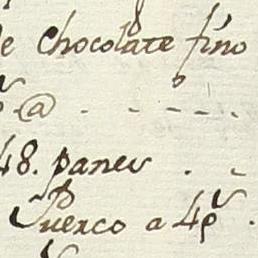 e chocolate fino
@ . - - - .
48. panes . -
Puerco a 4p^s .